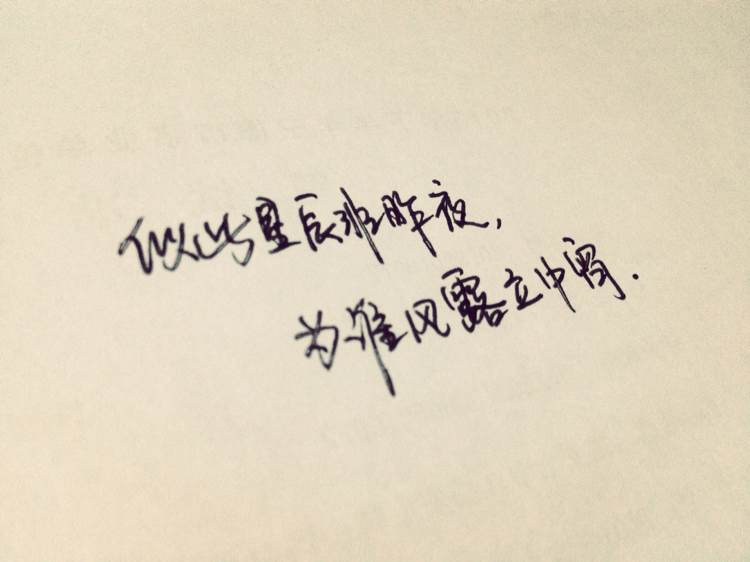 似此星辰非昨夜，
为谁风露立中宵.